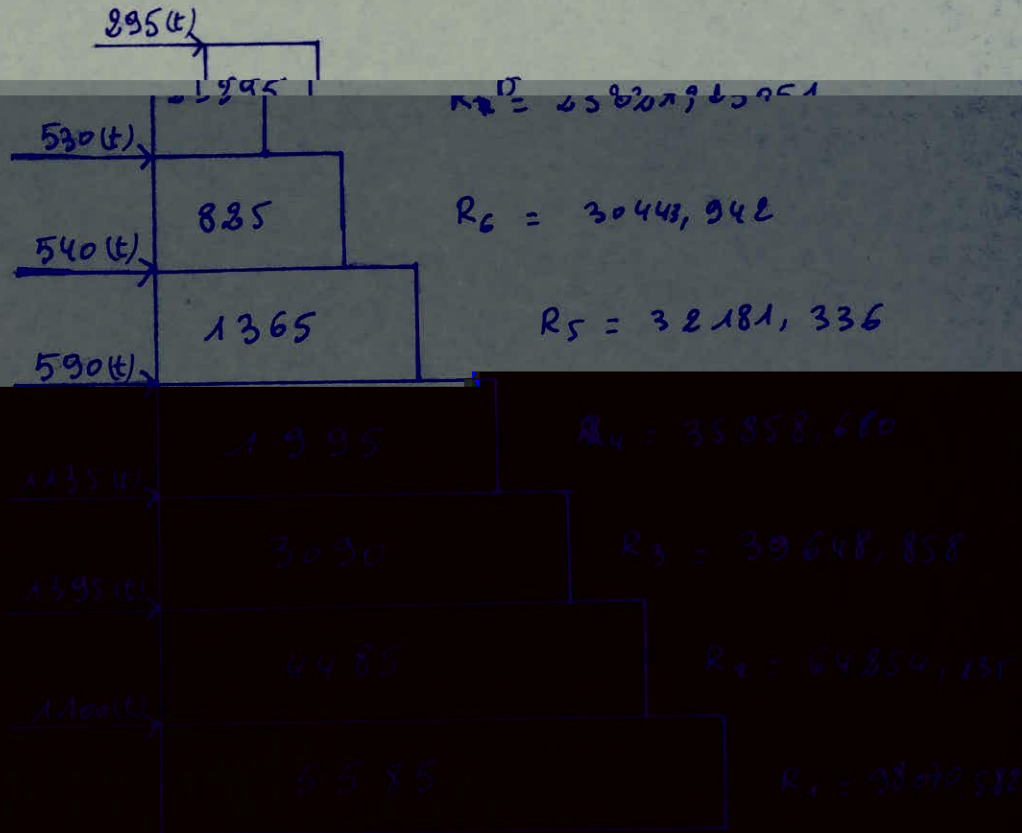 295(t)
295
530(t)
825 R6 = 30443,942
540(t)
1365 R5 = 32181,336
590(t)
1995 R4 = 35858,680
1135(t)
3090 R3 = 39648,858
1395(t)
4485 R2 =
1100(t)
5585 R1 =